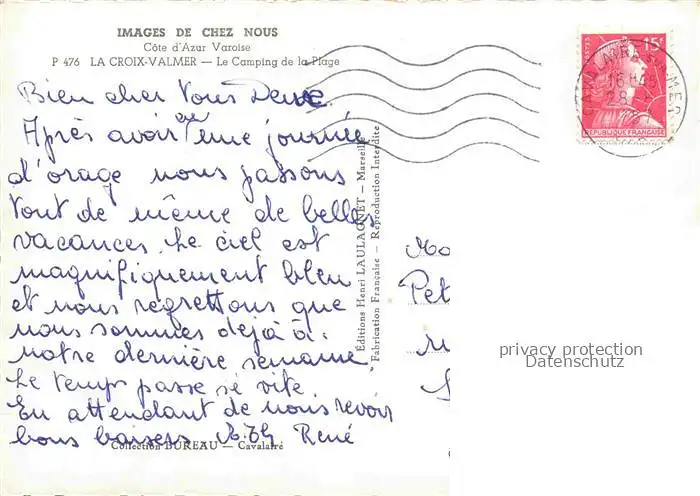 IMAGES DE CHEZ NOUS
Côte d'Azur Varoise
P 476 LA CROIX-VALMER — Le Camping de la Plage
Bien cher Vous Deux.
Après avoir eu une journée
d'orage nous passons
tout de même de belles
vacances. Le ciel est
magnifiquement bleu
et nous regrettons que
nous sommes déjà à
notre dernière semaine
Le temps passe si vite.
En attendant de nous revoir
bons baisers René
Collection BUREAU — Cavalaire
Éditions Henri LAULAGNET — Marseille
Fabrication Française — Reproduction Interdite
15F
POSTES
RÉPUBLIQUE FRANÇAISE
28
Pet
privacy protection
Datenschutz